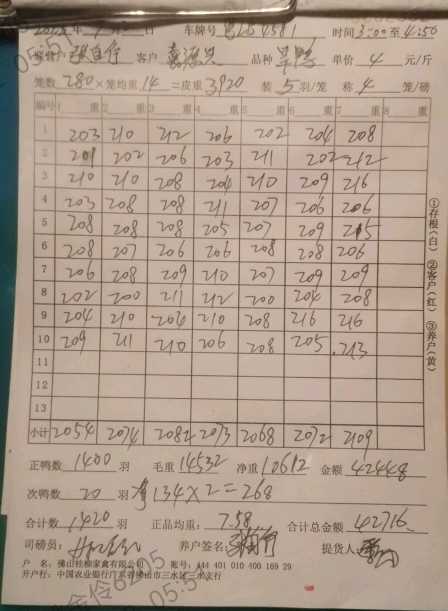 车牌号 4581 时间 3:00 至 4:50
客户 品种 旱鸭 单价 4 元/斤
笼数 280 × 笼均重 14 =皮重 3920 装 5 羽/笼 称 4 笼/磅
编号 1 重 2 重 3 重 4 重 5 重 6 重 7 重 8 重
1 203 210 212 206 202 204 208
2 201 202 206 203 211 202 212
3 210 210 208 204 210 209 216
4 203 208 208 211 207 206 206
5 208 208 208 205 207 209 215
6 208 207 206 206 208 208 206
7 206 208 209 210 207 209 209
8 202 200 211 212 200 204 208
9 204 210 204 210 208 216 216
10 209 211 210 206 208 205 213
11
12
13
小计 2054 2074 2082 2073 2068 2072 2109
正鸭数 1400 羽 毛重 14532 净重 10612 金额 42448
次鸭数 20 羽 134×2=268
合计数 1420 羽 正品均重: 7.58 合计总金额 42716
司磅员: 养户签名: 提货人:
户 名: 佛山桂柳家禽有限公司 账号: 444 401 010 400 169 29
开户行: 中国农业银行广东省佛山市三水区三水支行
①存根(白) ②客户(红) ③养户(黄)